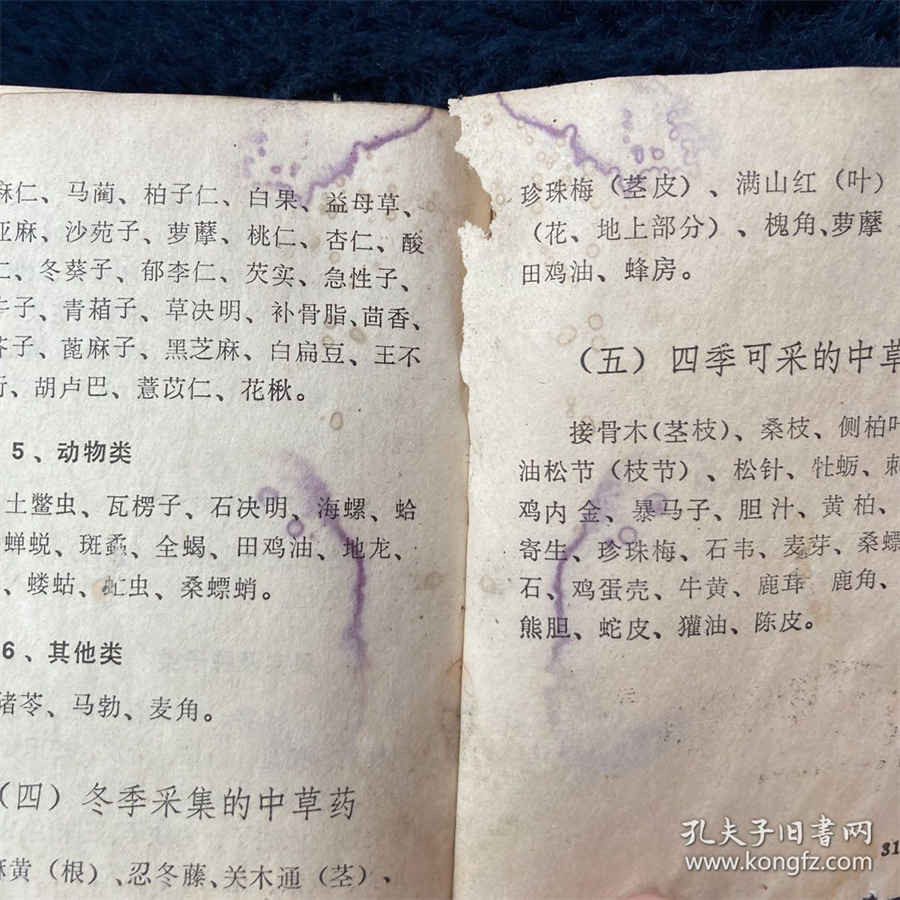 麻仁、马蔺、柏子仁、白果、益母草、
亚麻、沙苑子、萝藦、桃仁、杏仁、酸
仁、冬葵子、郁李仁、芡实、急性子、
牛子、青葙子、草决明、补骨脂、茴香、
芥子、蓖麻子、黑芝麻、白扁豆、王不
行、胡卢巴、薏苡仁、花椒。
5、动物类
土鳖虫、瓦楞子、石决明、海螺、蛤
蝉蜕、斑蝥、全蝎、田鸡油、地龙、
、蝼蛄、虻虫、桑螵蛸。
6、其他类
猪苓、马勃、麦角。
(四)冬季采集的中草药
麻黄(根)、忍冬藤、关木通(茎)、
珍珠梅(茎皮)、满山红(叶)
(花、地上部分)、槐角、萝藦
田鸡油、蜂房。
(五)四季可采的中草
接骨木(茎枝)、桑枝、侧柏叶
油松节(枝节)、松针、牡蛎、刺
鸡内金、暴马子、胆汁、黄柏、
寄生、珍珠梅、石韦、麦芽、桑螵
石、鸡蛋壳、牛黄、鹿茸 鹿角、
熊胆、蛇皮、獾油、陈皮。
31
孔夫子旧書网
www.kongfz.com